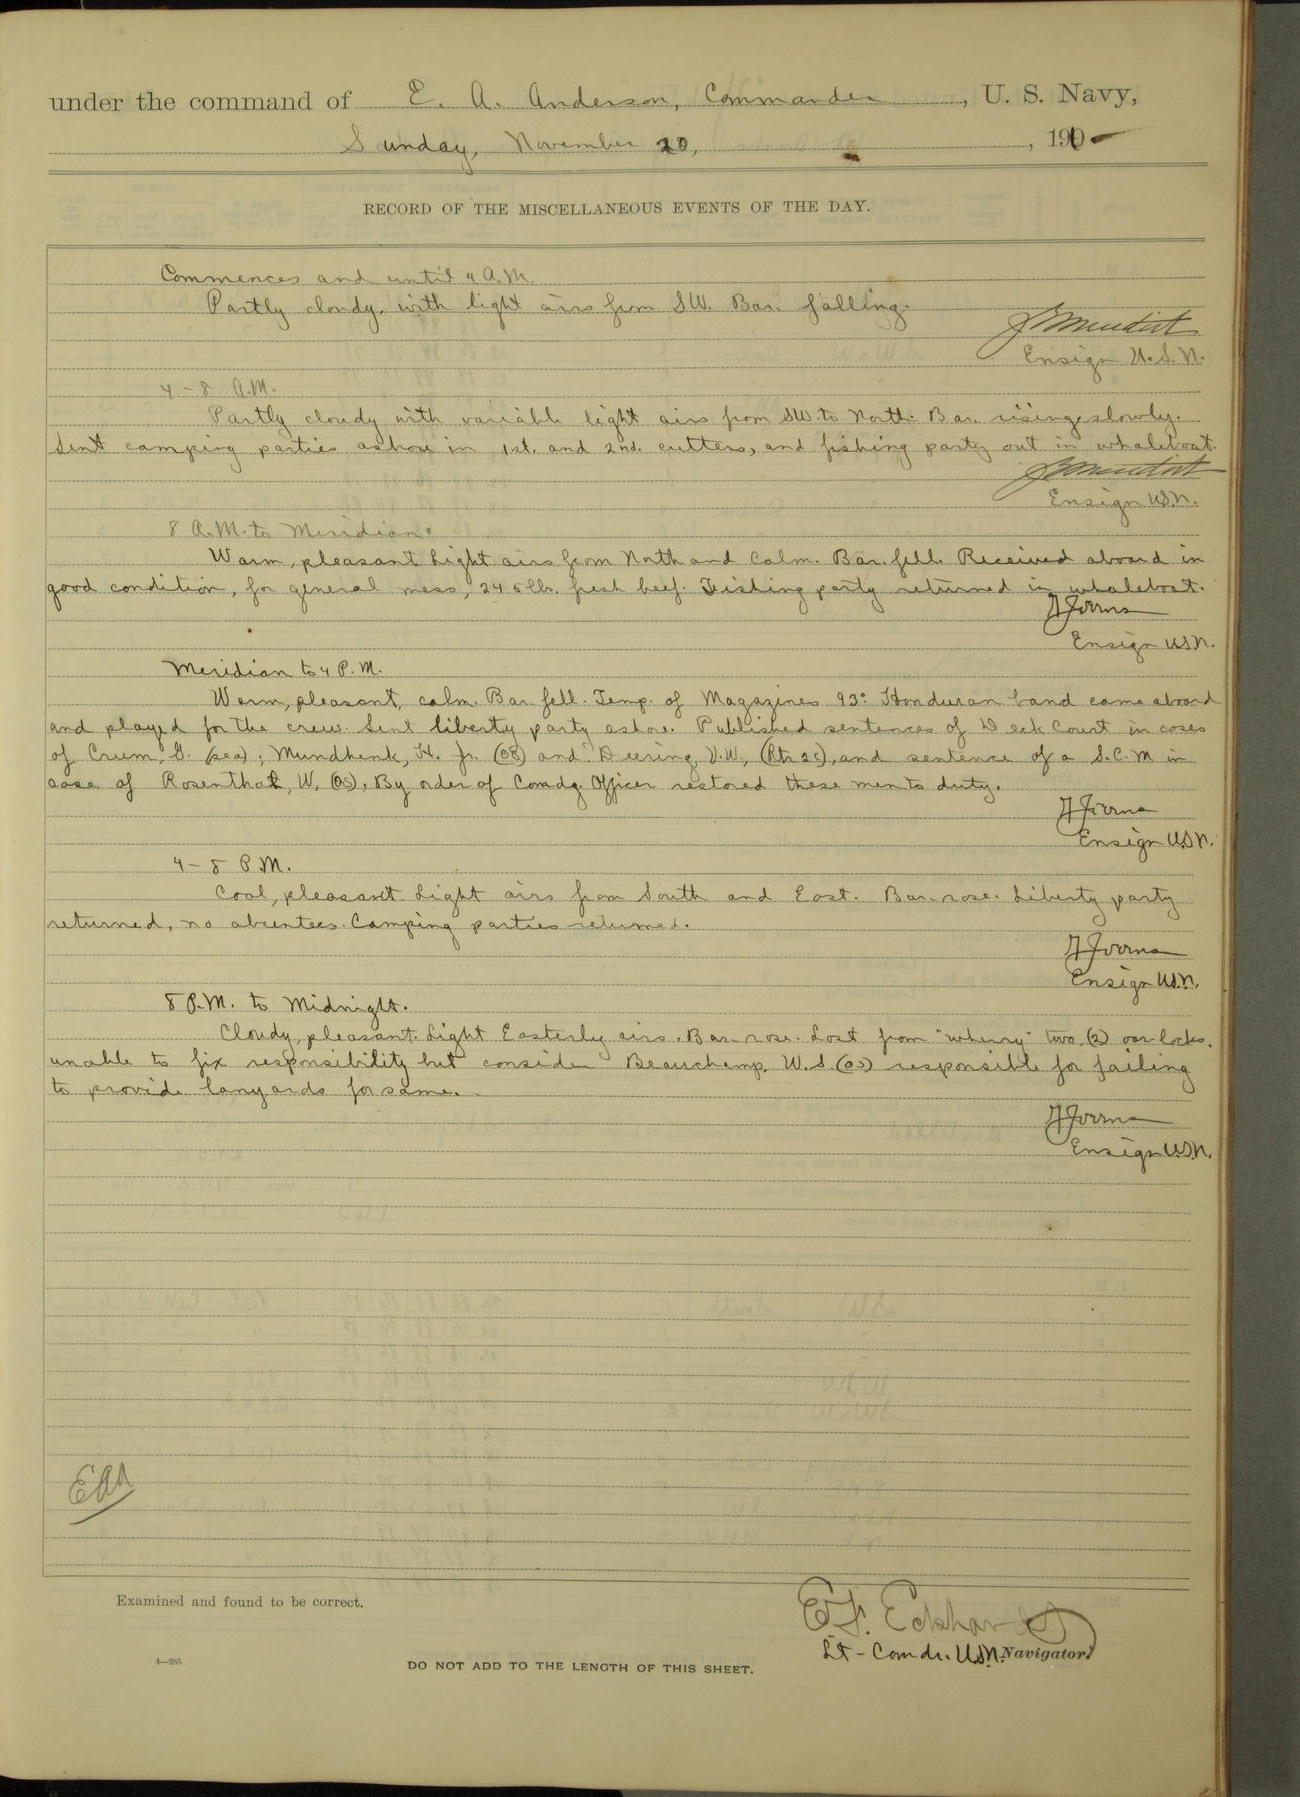 under the command of E. A. Anderson, Commander, U. S. Navy,
Sunday, November 20, 1910
RECORD OF THE MISCELLANEOUS EVENTS OF THE DAY.
Commences and until 4 A.M.
Partly cloudy, with light airs from SW. Bar. falling.
Ensign U.S.N.
4 - 8 A.M.
Partly cloudy with variable light airs from SW. to North. Bar. rising slowly.
Sent camping parties ashore in 1st. and 2nd. cutters, and fishing party out in whaleboat.
Ensign U.S.N.
8 A.M. to Meridian.
Warm, pleasant. Light airs from North and Calm. Bar. fell. Received aboard in
good condition, for general mess, 245 lbs. fresh beef. Fishing party returned in whaleboat.
Ensign U.S.N.
Meridian to 4 P.M.
Warm, pleasant, calm. Bar. fell. Temp. of Magazines 93°. Honduran band came aboard
and played for the crew. Sent liberty party ashore. Published sentences of Deck Court in cases
of Crum, G. (sea); Mundhenk, H. Jr. (OS) and Deering, V.W., and sentence of a S.C.M in
case of Rosenthal, W. (OS), By order of Comdg. Officer restored these men to duty.
Ensign U.S.N.
4 - 8 P.M.
Cool, pleasant. Light airs from South and East. Bar. rose. Liberty party
returned, no absentees. Camping parties returned.
Ensign U.S.N.
8 P.M. to Midnight.
Cloudy, pleasant. Light Easterly airs. Bar. rose. Lost from "wherry" two (2) oar locks.
unable to fix responsibility but consider Beauchamp, W.S. (OS) responsible for failing
to provide lanyards for same.
Ensign U.S.N.
EAA
Examined and found to be correct.
E. F. Eckhardt
Lt-Comdr. U.S.N. Navigator.
4—265
DO NOT ADD TO THE LENGTH OF THIS SHEET.